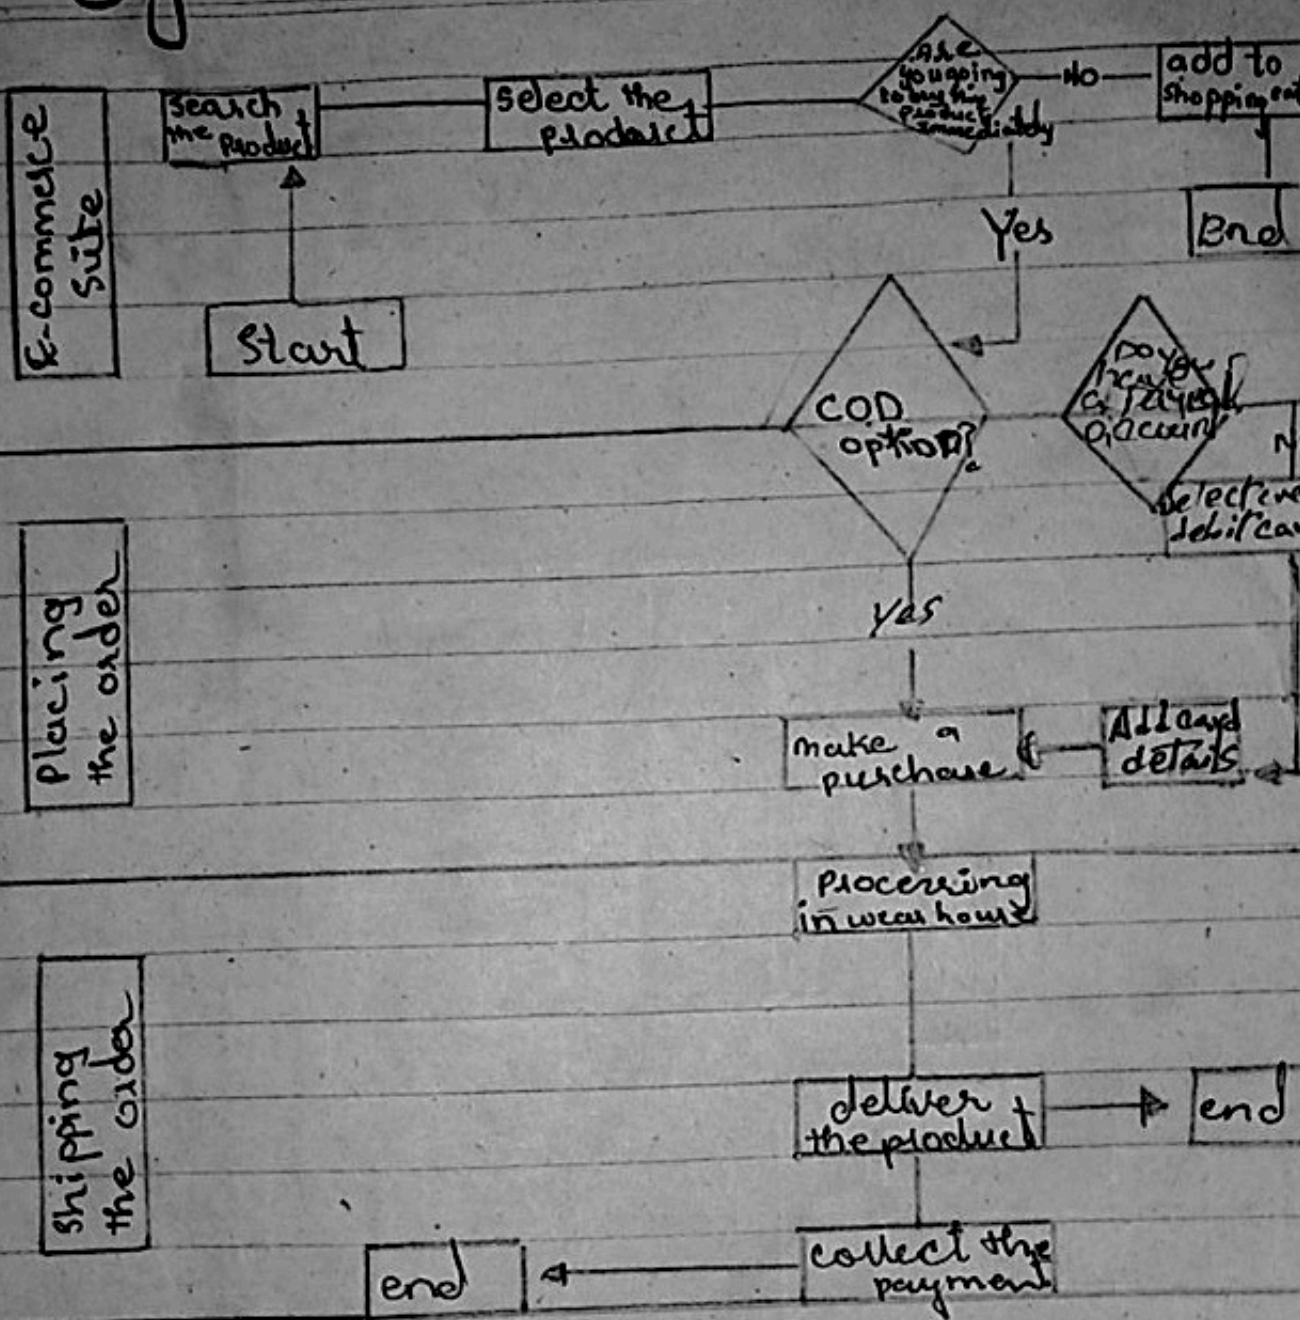 E-commerce
Suite
Search
the product
Select the
product
Are
you going
to buy the
product
immediately
No
add to
shopping
Yes
End
Start
COD
option?
Do you
have
a
debit
Placing
the order
yes
make a
purchase
Add card
details
Processing
in wear house
Shipping
the order
deliver
the product
end
collect the
payment
end